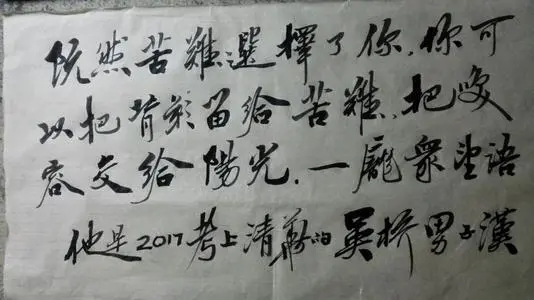 既然苦難選擇了你,你可
以把背影留给苦難,把咲
容交给陽光.一龐眾望語
他是2017考上清華的吴桥男子漢